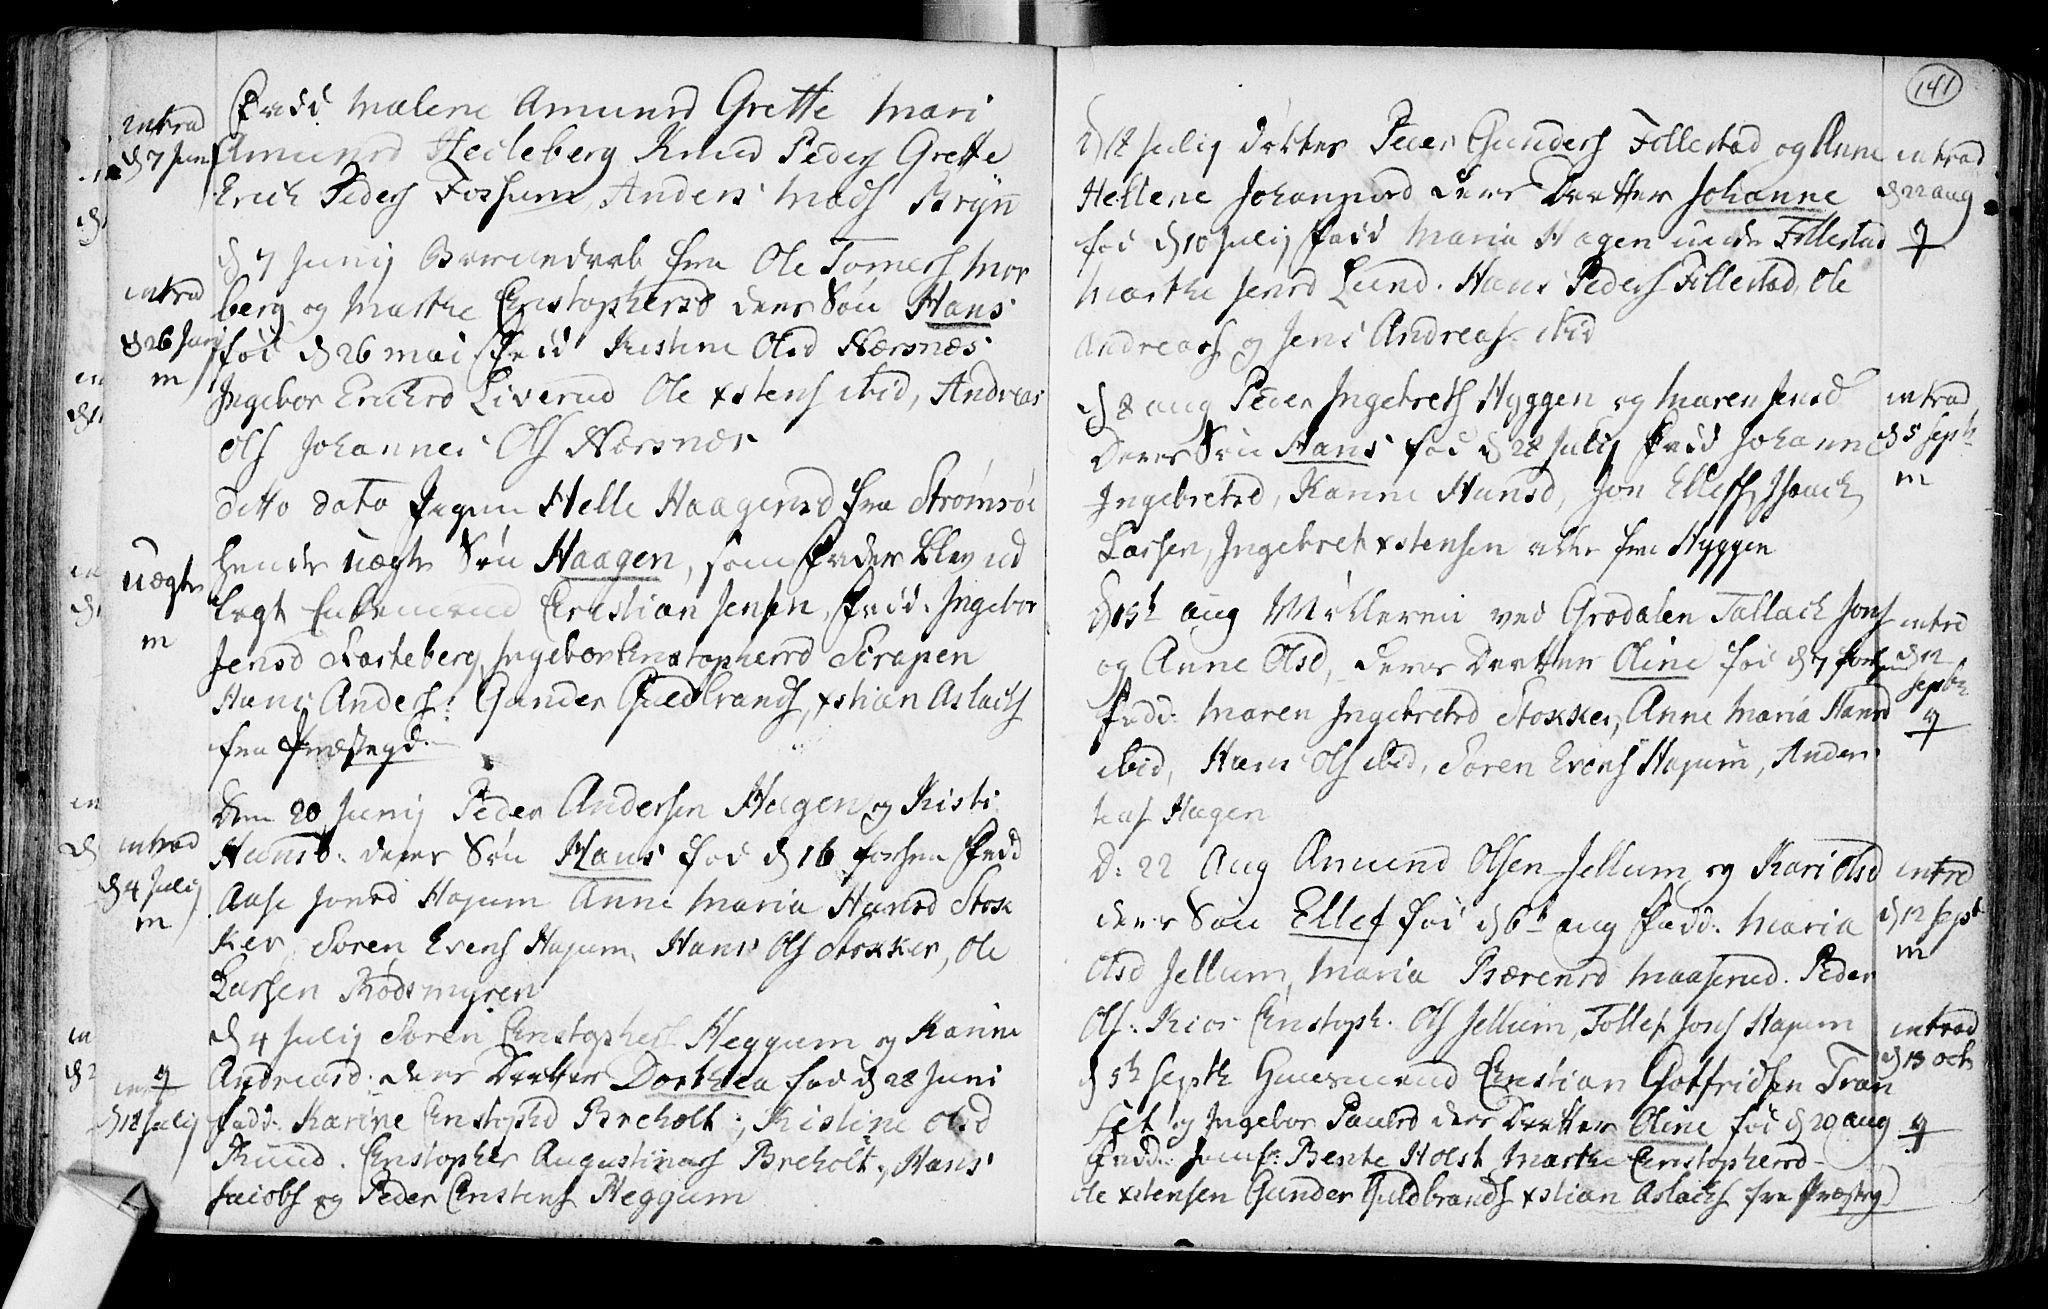 intrad
d 7 Juni
Fadd Malene Amunds Grette Mari
Amunds Heileberg Knud Peders Grette
Erich Peders Fossum, Anders Mads Brÿn
intrad
d 26 Juni
m
d 7 Junij fra Ole Tomers Mor
berg og Marthe Christophersd deres Søn Hans
fød d 26 mai Fadd Kistine Olsd Nærsnæs
Ingebor Erichsd Liverud Ole xstens ibid, Andreas
Ols Johannes Ols Nærsnæs
uægte
m
ditto dato Pigen Helle Haagensd fra Strømsøe
hendes uægte Søn Haagen, som Fader blev ud
lagt Christian Jensen, Fadd. Ingebor
Jensd Ingebor Christophersd
Hans Anders: Gunder Guldbrands, xstian Aslachs
fra Præstegd.
intrad
d 4 Julij
m
Den 20 Junij Peder Andersen Hagen og Kisti
Hansd. deres Søn Hans fød d 16 Fadd
Aase Jonsd Hajum Anne Maria Hansd Stok
ker, Søren Evens Hajum, Hans Ols Stokker, Ole
Larsen Rødsmyren
q
d 18 Julij
d 4 Julij Søren Christophers Heggum og Karine
Andreasd. deres Datter Dorthea fød d 28 Juni
Fadd. Karine Christophd Breholt, Kistine Olsd
Ruud. Christopher Augustinus Breholt, Hans
Jacobs og Peder Christens Heggum
141
d 18 Julij døbtes Peder Gunders Follestad og Anne
Hellene Johannesd deres Datter Johanne
fød d 10 Julij Fadd Maria Hagen Follestad
Marthe Jensd Lund. Hans Peders Follestad, Ole
Andreas og Jens Andreas ibid
intrad
d 22 aug
q
d 8 aug Peder Ingebrets Hyggen og Maren Jensd
Deres Søn Hans fød d 28 Julij Fadd Johanne
Ingebretsd, Karine Hansd, Jon Ellefs, Isaach
Larsen, Ingebret xstensen alle fra Hyggen
intrad
d 5 Septb
m
D 15h aug Mølleren ved Grødalen Tallach Jons
og Anne Olsd, deres Datter Oline fød d 7
Fadd: Maren Ingebretsd Stokker, Anne Maria Hansd
ibid, Hans Ols ibid, Søren Evens Hajum, Anders
Hagen
intrd
d 12
Septbr
q
D: 22 Aug Amund Olsen Jellum og Kari Olsd
deres Søn Ellef fød d 6t aug Fadd: Maria
Olsd Jellum, Maria Bærensd Maaserud. Peder
Ols: Kios Christoph. Ols Jellum, Tollef Jons Hajum
intrd
d 12 Sept
m
d 5h Septb Huusmand Christian Gotfridsen Tran
set og Ingebor Paulsd deres Datter Oline fød d 20 aug
Fadd: Jomf: Bente Holst Marthe Christophersd
Ole xstensen Gunder Guldbrands xstian Aslachs fra Præsteg
intrad
d 13 octb
q